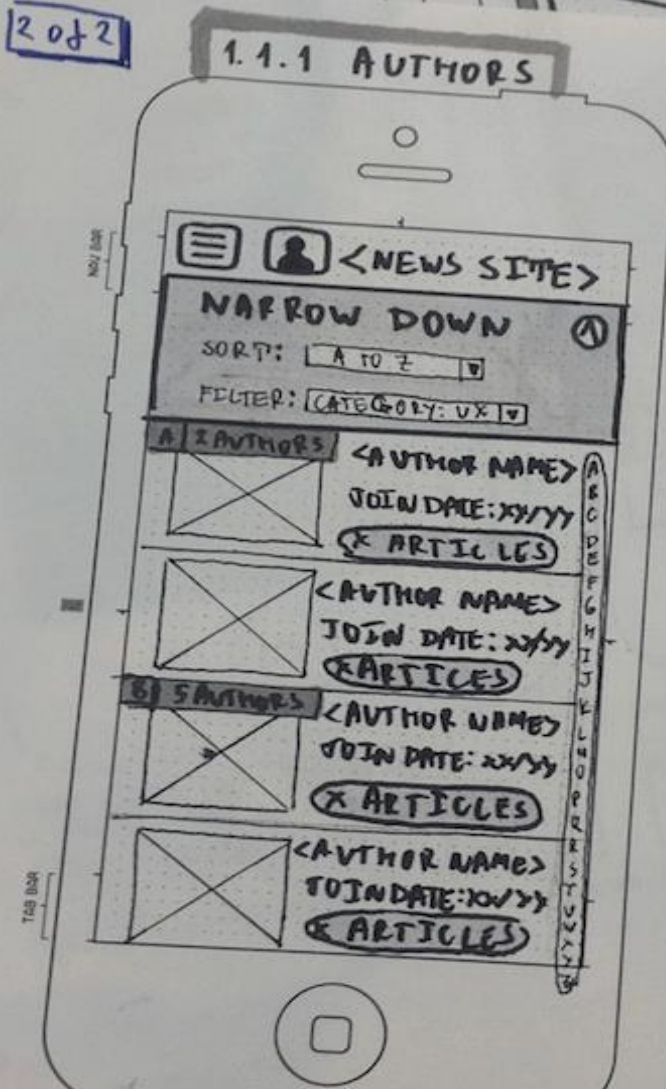 2 of 2
1.1.1 AUTHORS
NAV BAR
<NEWS SITE>
NARROW DOWN
SORT: A TO Z
FILTER: CATEGORY: UX
A 2 AUTHORS
<AUTHOR NAME>
JOIN DATE: XX/YY
X ARTICLES
<AUTHOR NAME>
JOIN DATE: XX/YY
X ARTICES
B 5 AUTHORS
<AUTHOR NAME>
JOIN DATE: XX/YY
X ARTICLES
<AUTHOR NAME>
JOIN DATE: XX/YY
X ARTICLES
A
B
C
D
E
F
G
H
I
J
K
L
M
O
P
Q
R
S
T
U
V
TAB BAR